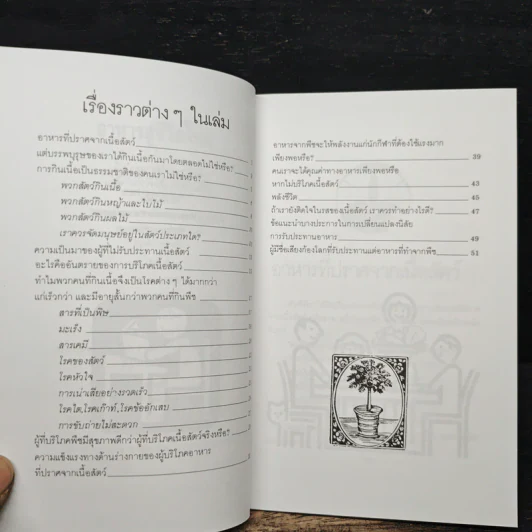 เรื่องราวต่าง ๆ ในเล่ม
อาหารที่ปราศจากเนื้อสัตว์
แต่บรรพบุรุษของเราได้กินเนื้อกันมาโดยตลอดไม่ใช่หรือ?
การกินเนื้อเป็นธรรมชาติของคนเราไม่ใช่หรือ?
พวกสัตว์กินเนื้อ
พวกสัตว์กินหญ้าและใบไม้
พวกสัตว์กินผลไม้
เราควรจัดมนุษย์อยู่ในสัตว์ประเภทใด?
ความเป็นมาของผู้ที่ไม่รับประทานเนื้อสัตว์
อะไรคืออันตรายของการบริโภคเนื้อสัตว์
ทำไมพวกคนที่กินเนื้อจึงเป็นโรคต่าง ๆ ได้มากกว่า
แก่เร็วกว่า และมีอายุสั้นกว่าพวกคนที่กินพืช
สารที่เป็นพิษ
มะเร็ง
สารเคมี
โรคของสัตว์
โรคหัวใจ
การเน่าเสียอย่างรวดเร็ว
โรคไต,โรคเก๊าท์,โรคข้ออักเสบ
การขับถ่ายไม่สะดวก
ผู้ที่บริโภคพืชมีสุขภาพดีกว่าผู้ที่บริโภคเนื้อสัตว์จริงหรือ?
ความแข็งแรงทางด้านร่างกายของผู้บริโภคอาหาร
ที่ปราศจากเนื้อสัตว์
อาหารจากพืชจะให้พลังงานแก่นักกีฬาที่ต้องใช้แรงมาก
เพียงพอหรือ? 39
คนเราจะได้คุณค่าทางอาหารเพียงพอหรือ
หากไม่บริโภคเนื้อสัตว์ 43
พลังชีวิต 45
ถ้าเรายังติดใจในรสของเนื้อสัตว์ เราควรทำอย่างไรดี? 47
ข้อแนะนำบางประการในการเปลี่ยนแปลงนิสัย
การรับประทานอาหาร 49
ผู้มีชื่อเสียงก้องโลกที่รับประทานแต่อาหารที่ทำจากพืช 51